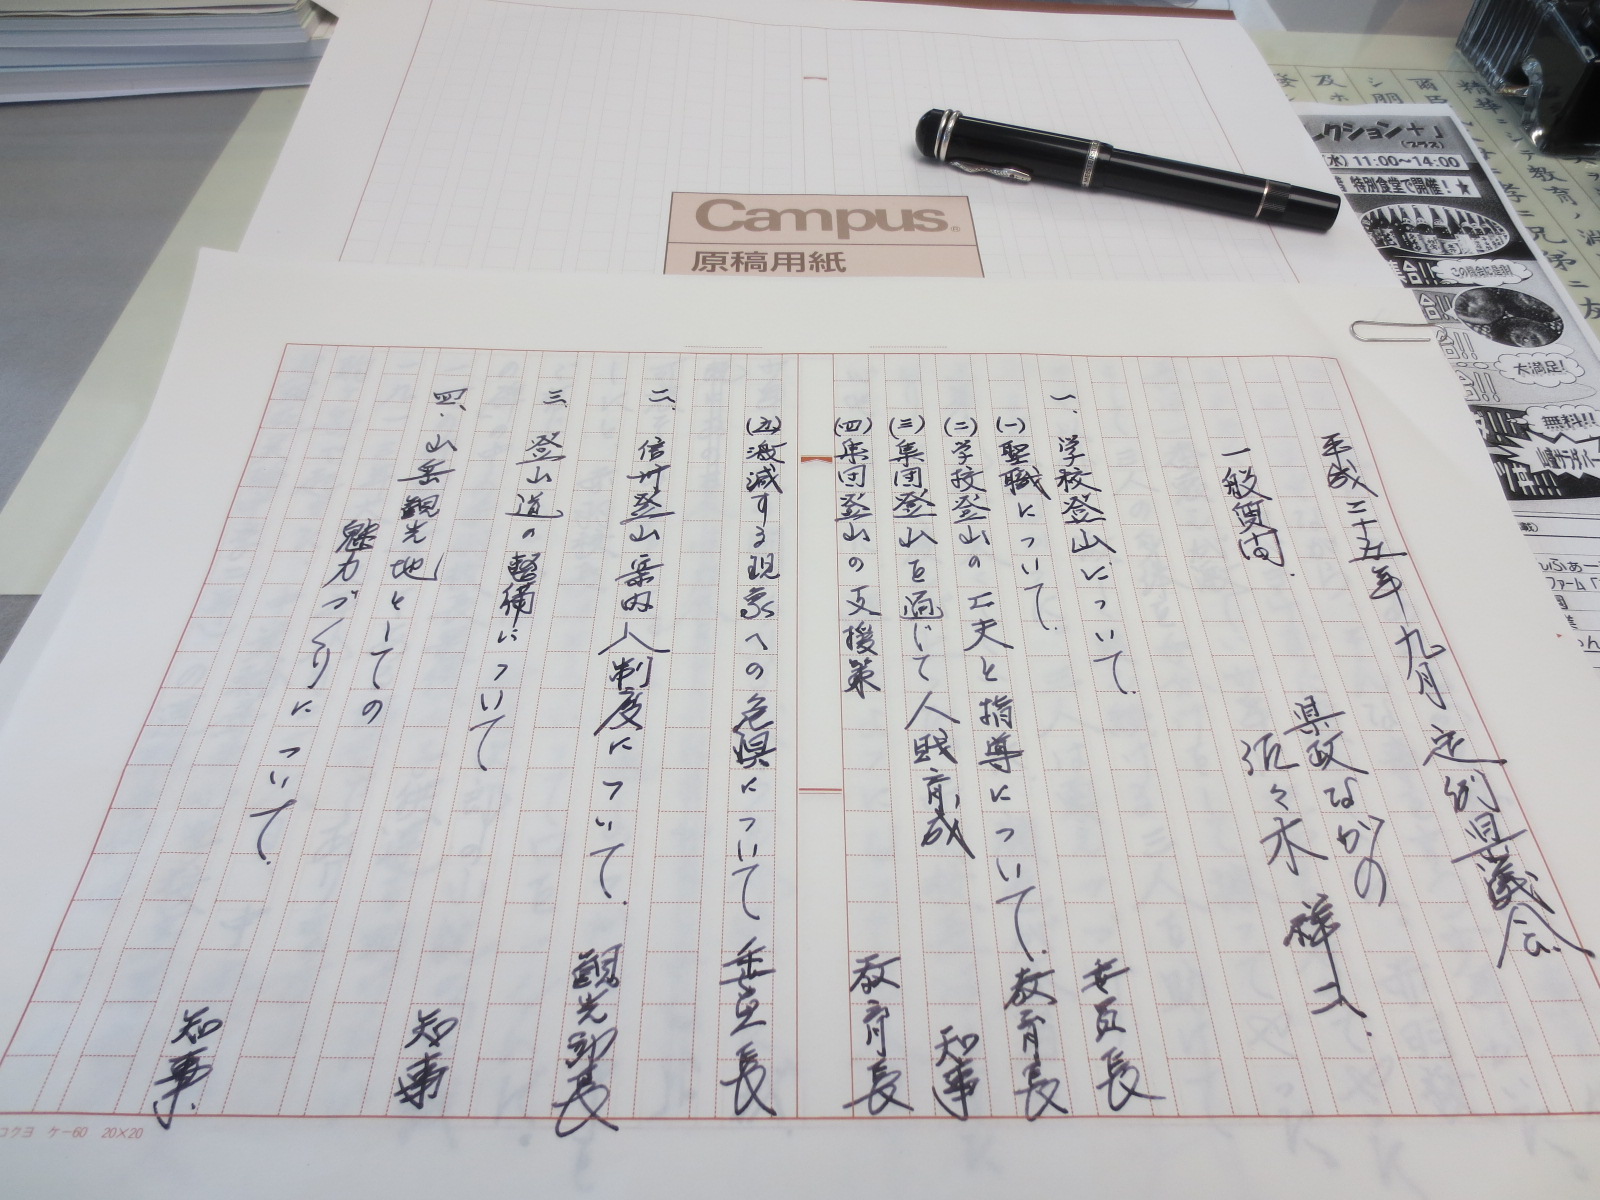 Campus
原稿用紙
クション+」
(プラス)
(水) 11:00〜14:00
特別食堂で開催!★
この機会に是非!
大満足!
無料!!
平成二十五年九月定例県議会
一般質問.
県政ながの
佐々木祥二.
一、学校登山について.
(一)聖職について. 委員長
(二)学校登山の工夫と指導について. 教育長
(三)集団登山を通じて人財育成 知事
(四)集団登山の支援策 教育長
(五)激減する現象への危惧について 委員長
二、信州登山案内人制度について. 観光部長
三、登山道の整備について 知事
四、山岳観光地としての
魅力づくりについて. 知事.
コクヨ ケー60 20×20